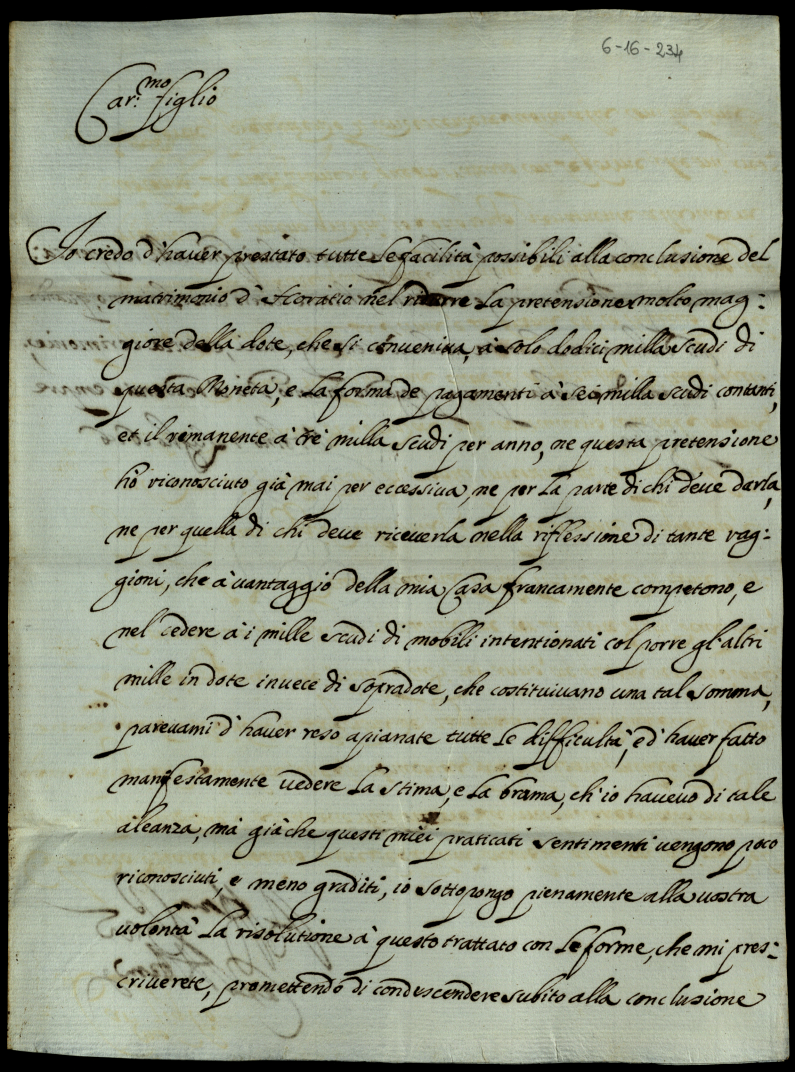 6-16-234
Car.mo figlio
Io credo d'hauer prestato tutte le facilità possibili alla conclusione del
matrimonio d'Horatio nel ridurre la pretensione molto mag:
giore della dote, che si conueniua, à solo dodici milla scudi di
questa Moneta, e la forma de pagamenti à sei milla scudi contanti,
et il rimanente à trè milla scudi per anno, ne questa pretensione
hò riconosciuto già mai per eccessiua, ne per la parte di chi deue darla,
ne per quella di chi deue riceuerla nella riflessione di tante rag:
gioni, che à uantaggio della mia Casa francamente competono, e
nel cedere à i mille scudi di mobili intentionati col porre gl'altri
mille in dote inuece di sopradote, che costituiuano una tal somma,
pareuami d'hauer reso apianate tutte le difficultà, e d'hauer fatto
manifestamente uedere la stima, e la brama, ch'io haueuo di tale
aleanza, mà già che questi miei praticati sentimenti uengono poco
riconosciuti, e meno graditi, io sottopongo pienamente alla uostra
uolontà la risolutione à questo trattato con le forme, che mi pres:
criuerete, promettendo di condescendere subito alla conclusione